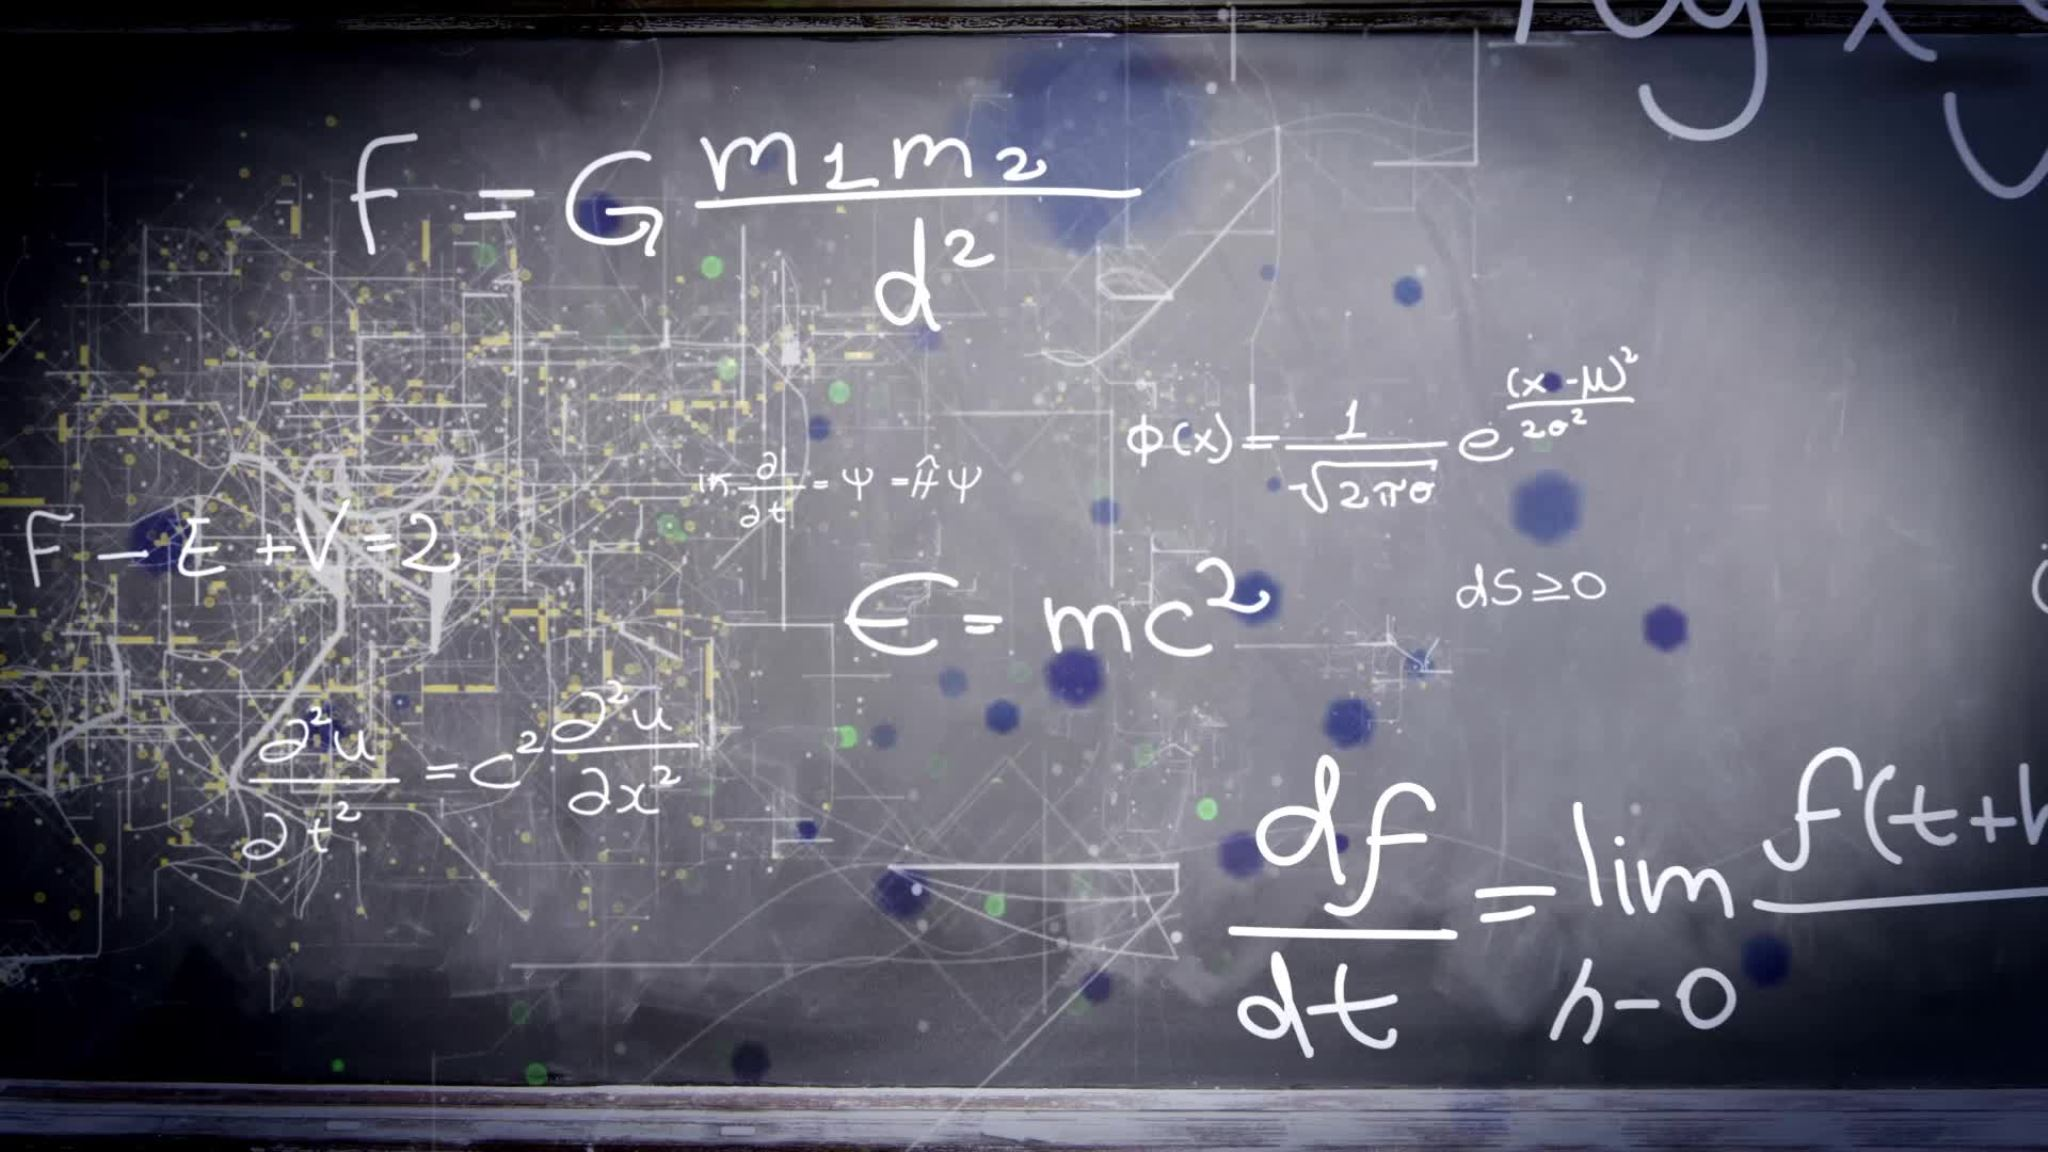 log x y
F = G m1m2 / d²
φ(x) = 1 / √2πσ e (x-μ)² / 2σ²
iħ ∂ / ∂t = Ψ = Ĥ Ψ
F - E + V = 2
E = mc²
dS ≥ 0
∂²u / ∂t² = c² ∂²u / ∂x²
df / dt = lim h-0 f(t+h